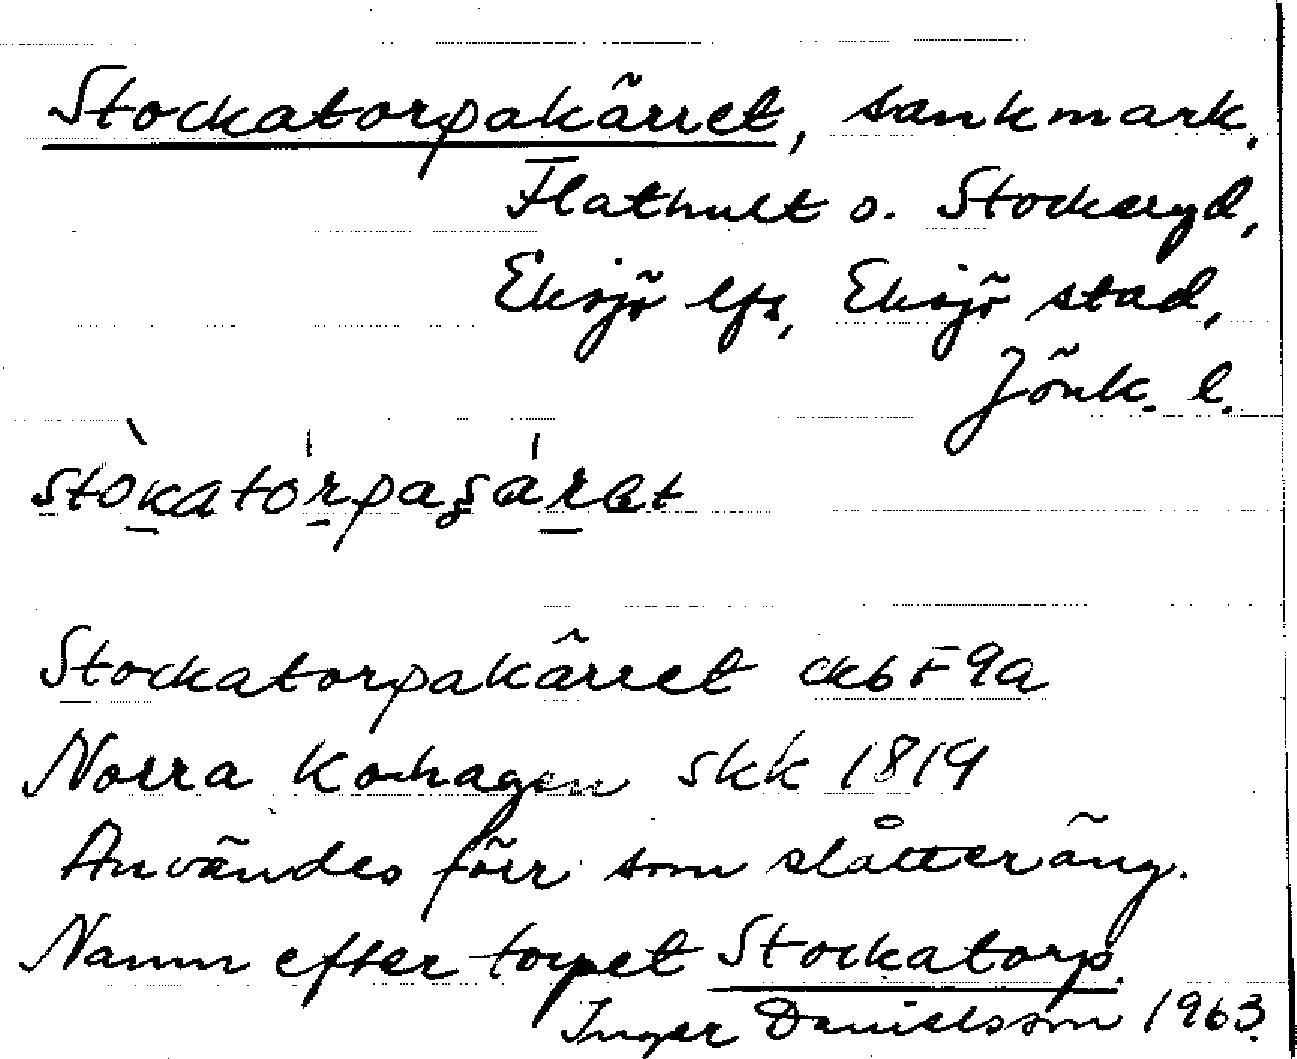 Stockatorpakärret, sankmark.
Flathult o. Stockeryd,
Eksjö lfs, Eksjö stad,
Jönk. l.
stòkatórpaʂárət
Stockatorpakärret ekbF9a
Norra Kohagen skk 1819
Användes förr som slåtteräng.
Namn efter torpet Stockatorp.
Inger Danielsson 1963.